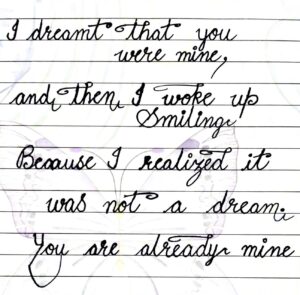 I dreamt that you
were mine,
and then I woke up
Smiling
Because I realized it
was not a dream.
You are already mine